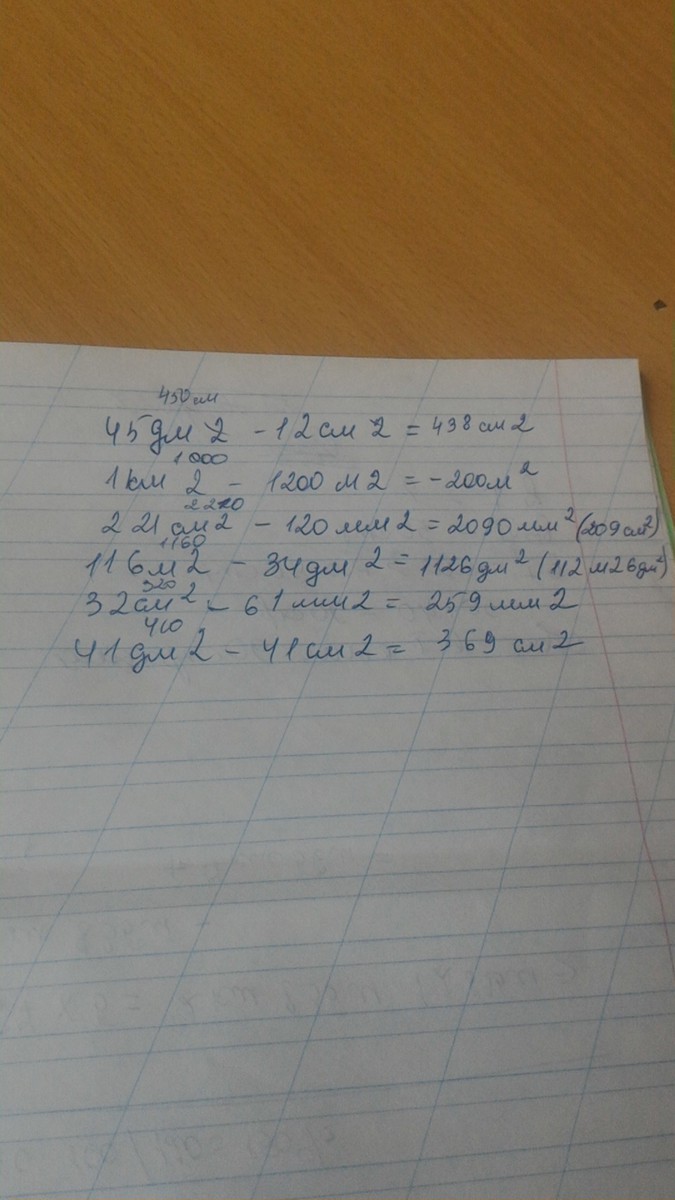 450 см
45дм 2 - 12 см 2 = 438 см 2
1000
1 км 2 - 1200 м 2 = -200м²
2210
221 см 2 - 120 мм 2 = 2090 мм² (209 см²)
1160
116 м 2 - 34 дм 2 = 1126 дм² (112 м 26 дм²)
320
32 см² - 61 мм 2 = 259 мм 2
410
41 дм 2 - 41 см 2 = 369 см 2